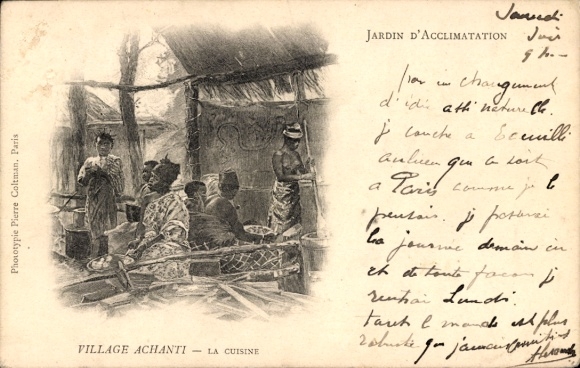 JARDIN D'ACCLIMATATION
Samedi
Soir
9 h
par un changement
d'idée assé naturelle.
je couche à
aulieu que ce soit
a Paris comme je le
pensais. je passerai
la journée demain
et de toute façon je
rentrai Lundi.
le monde est plus
que jamais
Phototypie Pierre Coltman, Paris
VILLAGE ACHANTI — LA CUISINE